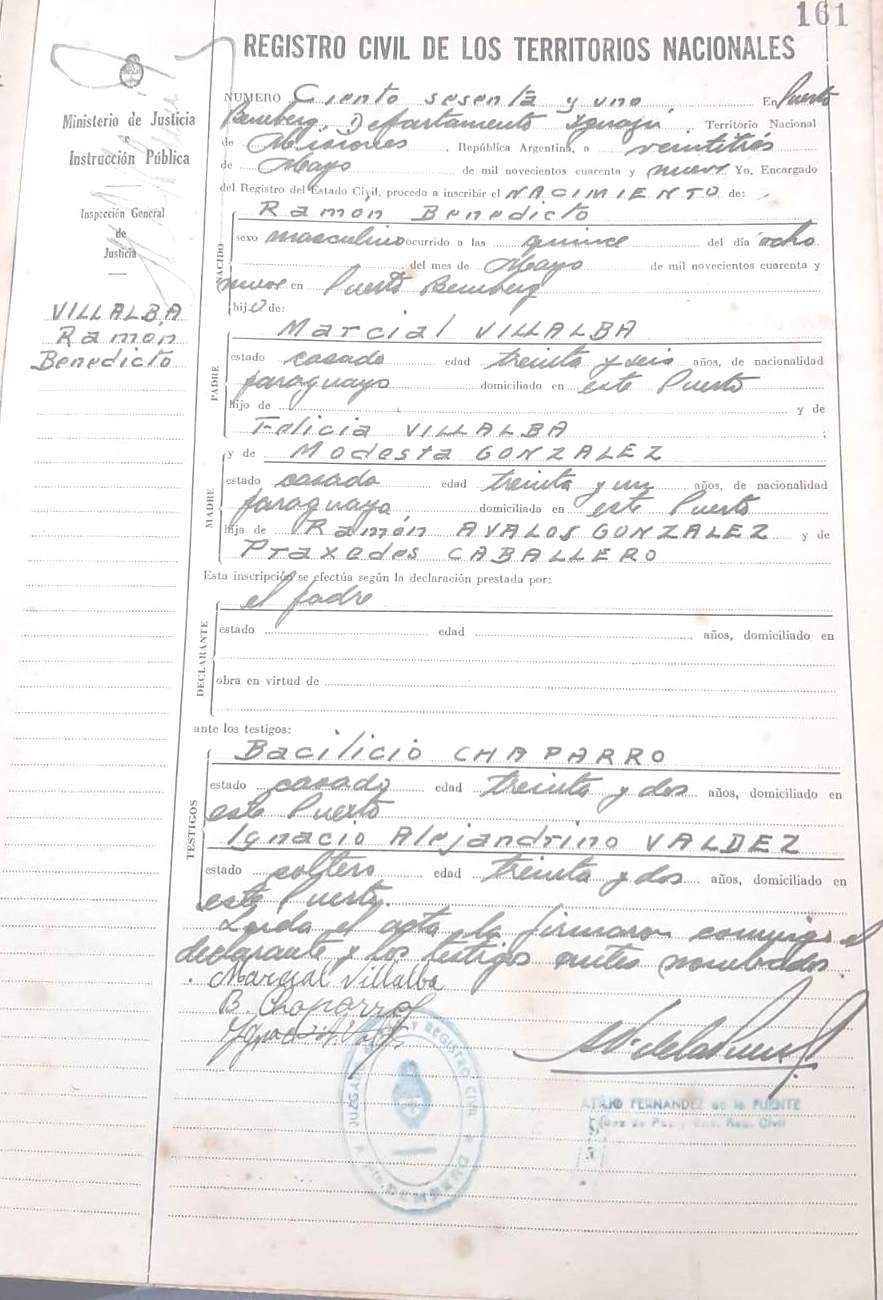 161
REGISTRO CIVIL DE LOS TERRITORIOS NACIONALES
Ministerio de Justicia
e
Instrucción Pública
Inspección General
de
Justicia
VILLALBA
Ramón
Benedicto
NUMERO Ciento sesenta y uno En Puerto
Bemberg, Departamento Iguazú, Territorio Nacional
de Misiones, República Argentina, a veintitrés
de Mayo de mil novecientos cuarenta y nueve Yo, Encargado
del Registro del Estado Civil, procedo a inscribir el NACIMIENTO de:
Ramon Benedicto
sexo masculino ocurrido a las quince del día ocho
del mes de Mayo de mil novecientos cuarenta y
nueve en Puerto Bemberg
hijo de:
PADRE
Marcial VILLALBA
estado casado edad treinta y seis años, de nacionalidad
paraguayo domiciliado en este Puerto
Hijo de y de
Felicia VILLALBA ;
y de Modesta GONZALEZ
MADRE
estado casada edad treinta y un años, de nacionalidad
paraguaya, domiciliado en este Puerto
hija de Ramón AVALOS GONZALEZ y de
Praxedes CABALLERO
Esta inscripción se efectúa según la declaración prestada por:
el padre
DECLARANTE
estado edad años, domiciliado en
obra en virtud de
ante los testigos:
TESTIGOS
Bacilicio CHAPARRO
estado casado edad treinta y dos años, domiciliado en
este Puerto
Ignacio Alejandrino VALDEZ
estado soltero edad treinta y dos años, domiciliado en
este Puerto.
Leída el acta, la firmaron conmigo el
declarante y los testigos antes nombrados.
Marcial Villalba
B. Chaparro
ATILIO FERNANDEZ de la PUENTE
Juez de Paz y Enc. Reg. Civil
JUZGADO REGISTRO CIVIL